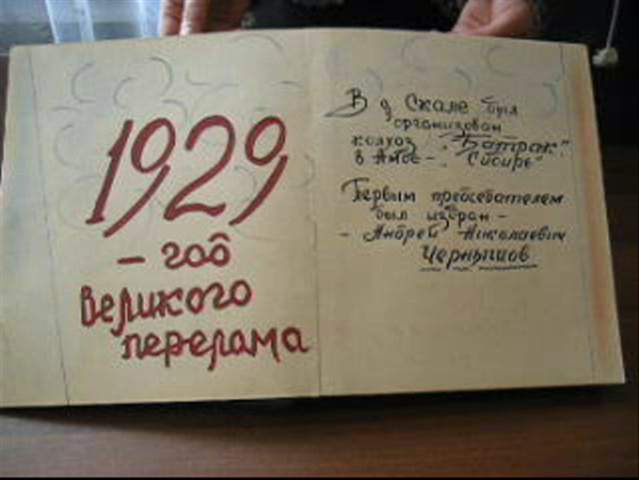 1929
- год
Великого
перелама
В д Скале был
организован
колхоз - "Батрак".
в Амбе - "Сибирь"
Первым председателем
был избран -
- Андрей Николаевич
Чернышов